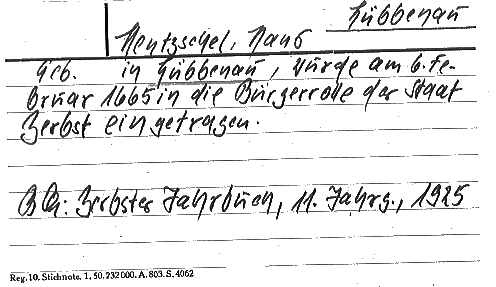 Lübbenau
Hentzschel, Hans
Geb. in Lübbenau, wurde am 6. Fe-
bruar 1665 in die Bürgerrolle der Staat
Zerbst eingetragen.
BQ: Zerbster Jahrbuch, 11. Jahrg., 1925
Reg. 10. Stichnote. 1. 50. 232000. A. 803. S. 4062